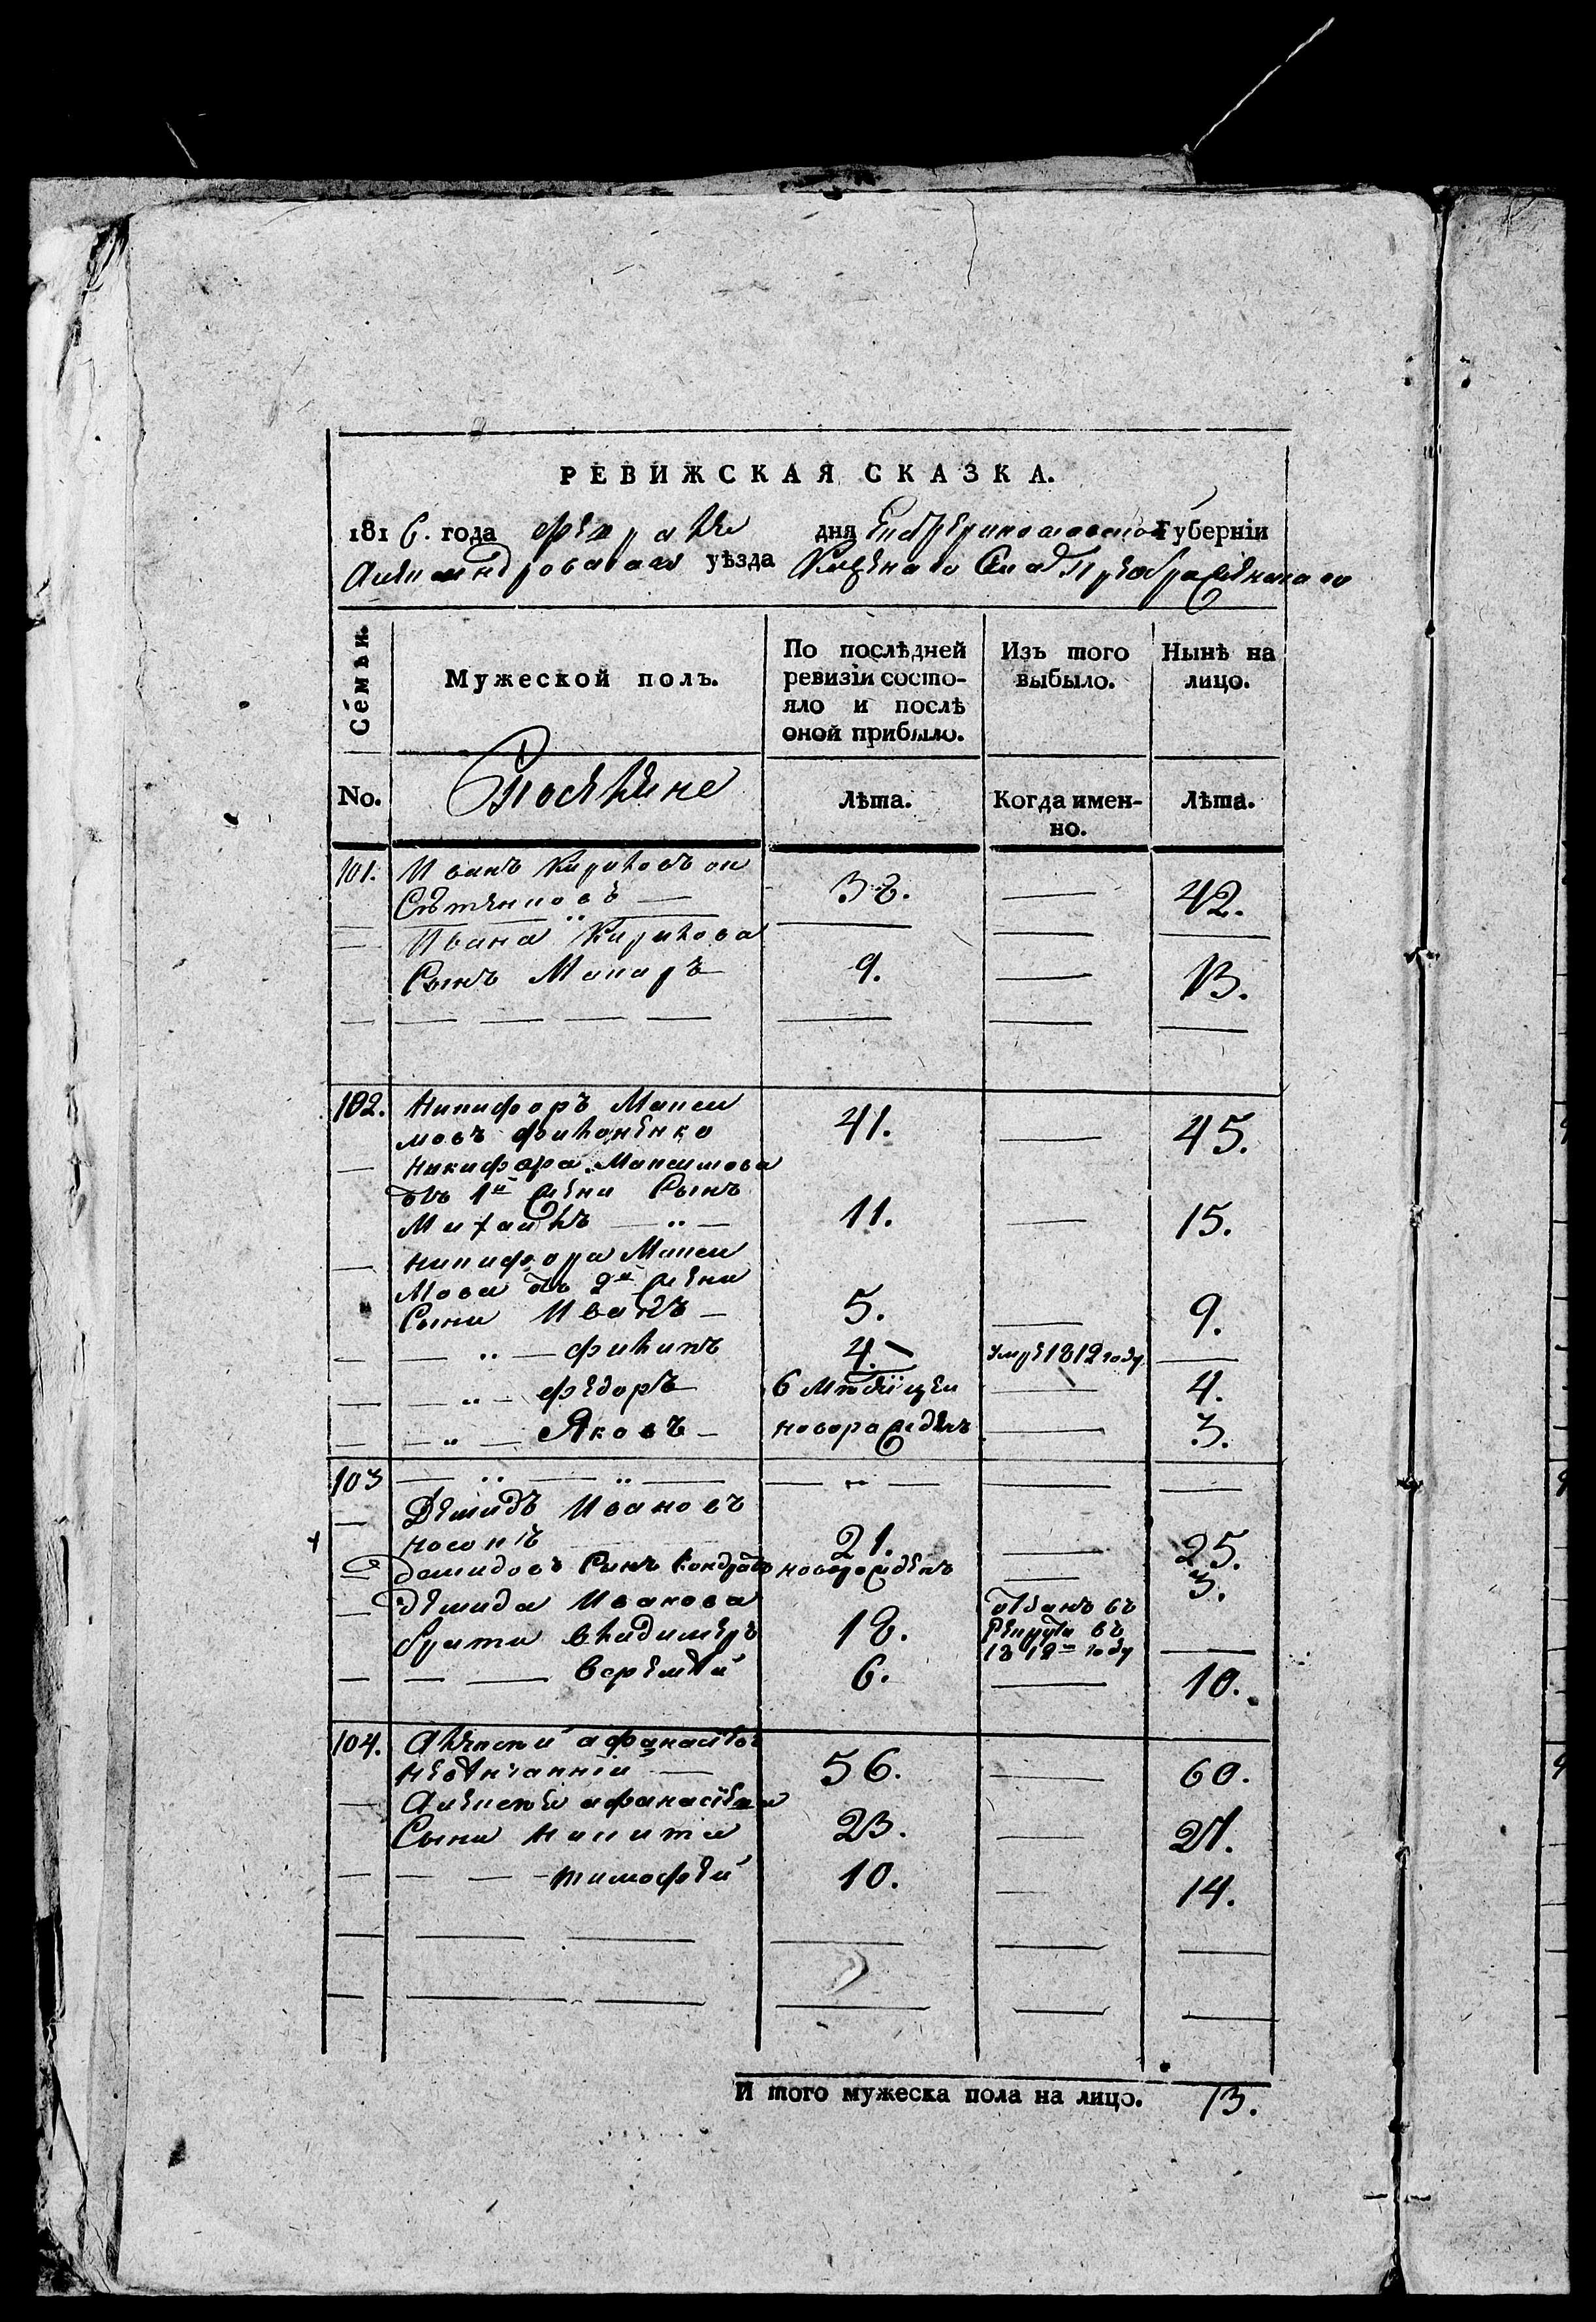 РЕВИЖСКАЯ СКАЗКА.
1816. года февраля дня Екатеринославской Губерніи
Александровскаго уѣзда Казенаго Села Преображенскаго
Семьи.
Мужеской полъ.
По послѣдней ревизіи состо-
яло и послѣ
оной прибыло.
Изъ того
выбыло.
Нынѣ на
лицо.
No.
Поселяне
Лѣта.
Когда имен-
но.
Лѣта.
101. Иванъ Кириловъ
38. 42.
Ивана Кирилова
Сынъ Макаръ 9. 13.
102. Никифоръ Макси
мовъ Филоненко 41. 45.
Никифора Максимова
отъ 1й жени Сынъ
Михайлъ 11. 15.
Никифора Макси
мова отъ 2й жени
Сыни Иванъ 5. 9.
Филипъ 4. умре 1812 году
Федоръ 6 мѣсяцей 4.
Яковъ новорожденъ 3.
103
Демидъ Ивановъ
Носокъ 21. 25.
Демидовъ Сынъ Кондратъ новорожденъ 3.
Демида Иванова
брати Владимеръ 18. отданъ въ
рекрути въ
1812м году
Веремѣй 6. 10.
104. Алексей Афанасіевъ
56. 60.
Алексея Афанасіева
Сыни Никита 23. 27.
Тимофей 10. 14.
И того мужеска пола на лицо. 13.